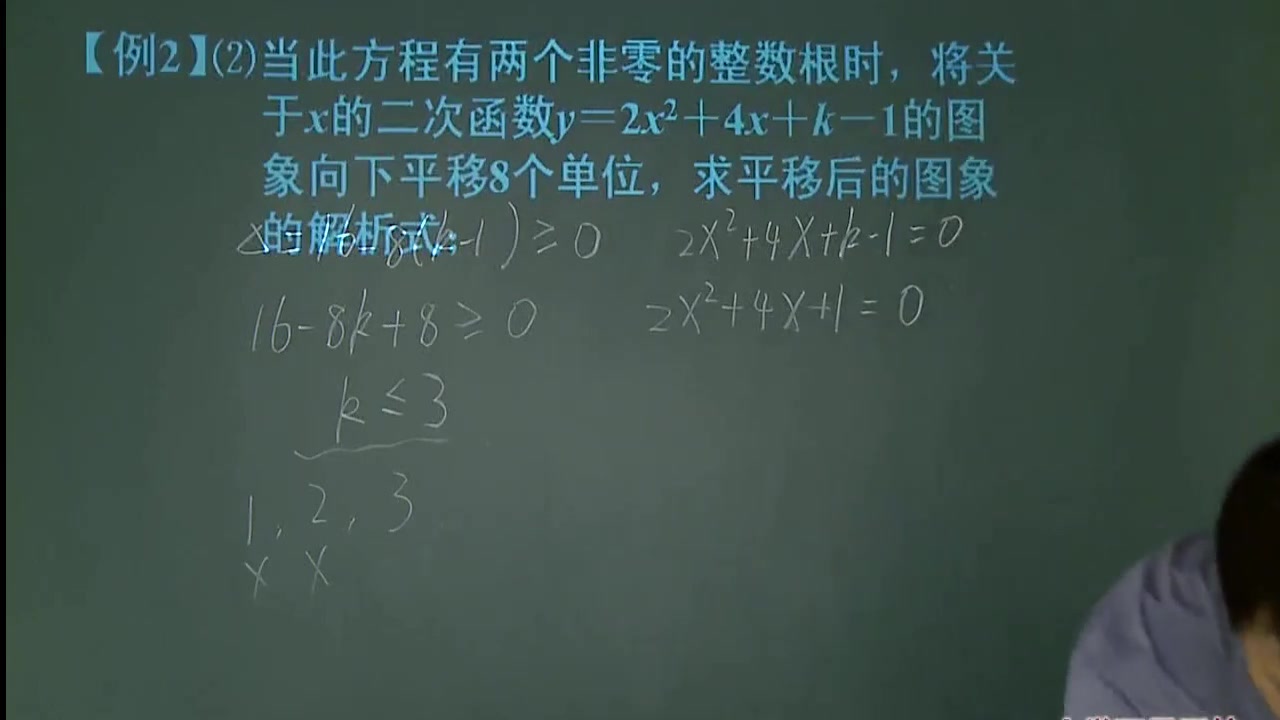 【例2】(2)当此方程有两个非零的整数根时，将关
于x的二次函数y＝2x²＋4x＋k－1的图
象向下平移8个单位，求平移后的图象
的解析式；
△=16-8(k-1)≥0
2x²+4x+k-1=0
16-8k+8≥0
2x²+4x+1=0
k≤3
1，2，3
x x